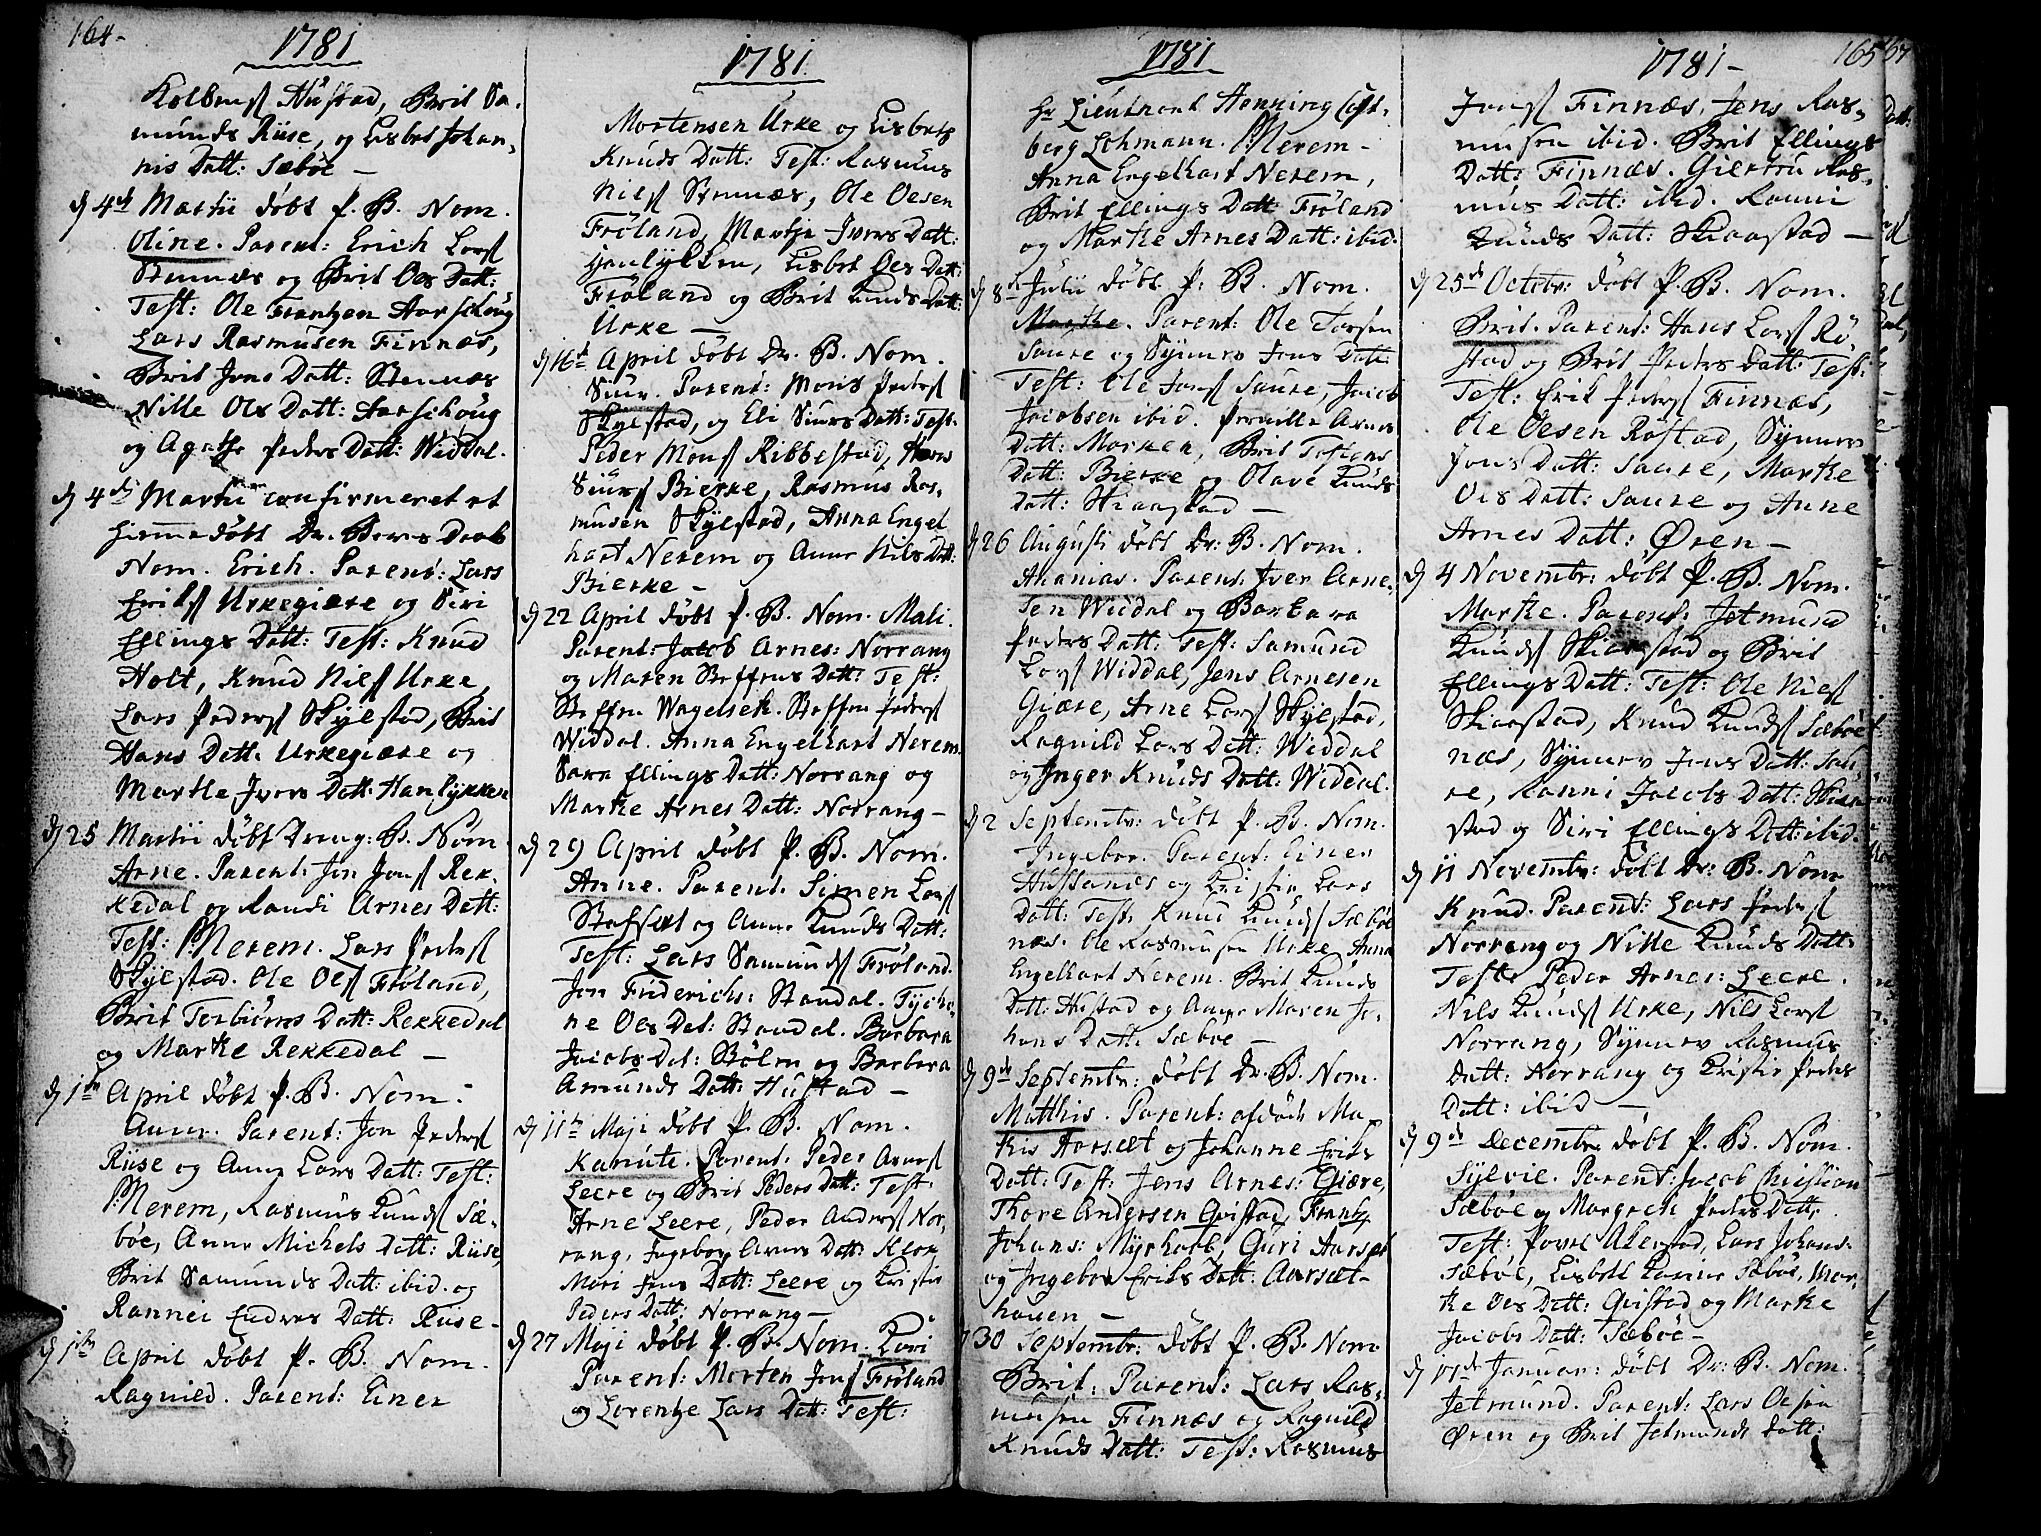 164-
1781
Kolbens Hustad, Brit Sa-
munds Riise, og Lisbet Johan-
nis Datt: Sæbøe —
d 4de Martii døbt P. B. Nom.
Oline. Parent: Erich Lars
Stennæs og Brit Oes Datt:
Test: Ole Frantzen Aarschoug
Lars Rasmusen Finnæs,
Brit Jons Datt: Stennæs
Nille Ols Datt: Aarschoug
og Agathe Peders Datt: Widdal.
d 4de Martii confirmeret et
hiemme døbt Dr. Barns Daab
Nom. Erich. Parent: Lars
Eriks Urkegiære og Siri
Ellings Datt: Test: Knud
Holt, Knud Nils Urke,
Lars Peders Skylstad, Brit
Hans Datt: Urkegiære og
Marthe Ivers Datt: Hanlykken
d 25 Martii døbt Dreng: B. Nom.
Arne. Parent: Jon Jons Rek-
kedal og Randi Arnes Datt:
Test: Merem. Lars Peders
Skylstad. Ole Ols Frøland,
Brit Torbiørns Datt: Rekkedal
og Marthe Rekkedal —
d 1te April døbt P. B. Nom:
Anne. Parent: Jon Peders
Riise og Anne Lars Datt: Test:
Merem, Rasmus Knuds Sæ-
bøe, Anne Michels Datt: Riise,
Brit Samunds Datt: ibid. og
Rannei Endres Datt: Riise-
d 1te April døbt P. B. Nom.
Ragnild. Parent: Einer
1781.
Mortensen Urke og Lisbeth
Knuds Datt: Test: Rasmus
Nils Stennæs, Ole Oesen
Frøland, Marthe Ivers Datt:
Lisbet Oes Datt:
Frøland og Brit Knuds Datt:
Urke —
d 16de April døbt Dr. B. Nom.
Siur. Parent: Mons Peders
Skylstad, og Eli Siurs Datt: Test:
Peder Mons Ribbestad, Hans
Siurs Bierke, Rasmus Ras-
musen Skylstad, Anna Engel
hart Nerem og Anne Nils Datt:
Bierke —
d 22 April døbt P. B. Nom. Mali.
Parent: Jacob Arnes: Norrang
og Maren Steffens Datt: Test:
Steffen Wagelseth. Steffen Peders
Widdal. Anna Engelhart Nerem.
Sara Ellings Datt: Norrang og
Marthe Arnes Datt: Norrang —
d 29 April døbt P. B. Nom.
Anne. Parent: Simen Lars
Stafset og Anne Knuds Datt:
Test: Lars Samunds Frøland.
Jon Friderichs: Standal. Tyche-
ne Oes Dat: Standal. Barbara
Jacobs Dat: Bølen og Barbara
Amunds Datt: Hustad —
d 11te Maji døbt P. B. Nom.
Kanute. Parent: Peder Arnes
Leere og Brit Peders Datt: Test:
Arne Leere, Peder Anders Nor-
rang, Ingebor Arnes Datt: Klok
Mari Jens Datt: Leere og Kristi
Peders Datt: Norrang —
d 27 Maji døbt P. B. Nom. Kari
Parent: Morten Jons Frøland
og Lorentze Lars Datt: Test:
1781
Hr Lieutnant Henning Cast-
berg Lohmann. Merem —
Anna Engelhart Nerem,
Brit Ellings Datt: Frøland
og Marthe Arnes Datt: ibid.
d 8de Julii døbt P. B. Nom.
Marthe. Parent: Ole Torsen
Saure og Synnev Jens Datt:
Test: Ole Jons Saure, Jacob
Jacobsen ibid. Pernille Arnes
Datt: Morken, Brit Tostens
Datt: Bierke og Olave Knuds
Datt: Skaastad —
d 26 Augusti døbt Dr: B. Nom.
Ananias. Parent: Iver Arne-
sen Widdal og Barbara
Peders Datt: Test: Samund
Lars Widdal, Jens Arnesen
Giære, Arne Lars Skylstad,
Ragnild Lars Datt: Widdal
og Inger Knuds Datt: Widdal.
d 2 Septembr: døbt P. B. Nom.
Ingebor. Parent: Einer
Hustanæs og Kristi Lars
Datt: Test: Knud Knuds Sæbøe
næs. Ole Rasmusen Urke, Anna
Engelhart Nerem. Brit Knuds
Datt: Hustad og Anne Maren Jo-
hans Datt: Sæbøe —
d 9de Septembr: døbt Dr. B. Nom.
Matthis. Parent: afdøde Ma-
this Aarsæt og Johanne Eriks
Datt: Test: Jens Arnes: Giære,
Thore Andersen Qvistad, Frantz
Johans: Myrholt, Guri Aarsæt
og Ingebor Eriks Datt: Aarsæt-
hauen —
d 30 Septembr: døbt P. B. Nom
Brit. Parent: Lars Ras-
musen Finnæs og Ragnild
Knuds Datt: Test: Rasmus
1781-
165
67
Jons Finnæs, Jens Ras-
musen ibid. Brit Ellings
Datt: Finnæs. Giertru Ras-
mus Datt: ibid. Ranni
Knuds Datt: Skaastad —
d 25de Octobr: døbt P. B. Nom.
Brit. Parent: Hans Lars Rø-
stad og Brit Peders Datt: Test:
Test: Erik Peders Finnæs,
Ole Oesen Røstad, Synnev
Jons Datt: Saure, Marthe
Oes Datt: Saure og Anne
Arnes Datt: Øren —
d 4 Novembr: døbt P. B. Nom.
Marthe. Parent: Jetmund
Knuds Skaastad og Brit
Ellings Datt: Test: Ole Niels
Skaastad, Knud Knuds Sæbøe
næs, Synnev Jons Datt: Sau-
re, Ranni Jacobs Datt: Skaa
stad og Siri Ellings Datt: ibid.
d 11 Novembr: døbt Dr: B. Nom
Knud. Parent: Lars Peders
Norrang og Nille Knuds Datt:
Test: Peder Arnes: Leere.
Nils Knuds Urke, Nils Lars
Norrang, Synnev Rasmus
Datt: Norrang og Kristi Peders
Datt: ibid —
d 9de Decembr døbt P. B. Nom.
Sylvie. Parent: Jacob Christian
Sæbøe og Margreth Peders Datt:
Test: Povel Alestad, Lars Johans:
Sæbøe, Lisbeth Karine Sæbøe, Mar-
the Oes Datt: Qvistad og Marthe
Jacobs Datt: Sæbøe —
d 17de Januar: døbt Dr: B. Nom.
Jetmund. Parent: Lars Olsen
Øren og Brit Jetmunds Datt: